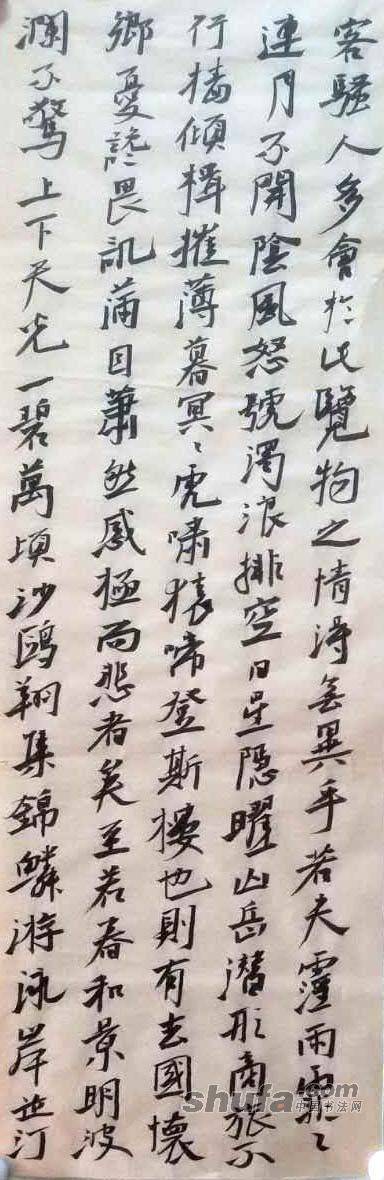 客騷人多會於此覽物之情得無異乎若夫霪雨霏〻
連月不開陰風怒號濁浪排空日星隱曜山岳潛形商旅不
行檣傾楫摧薄暮冥〻虎嘯猿啼登斯樓也則有去國懷
鄉憂讒畏譏滿目蕭然感極而悲者矣至若春和景明波
瀾不驚上下天光一碧萬頃沙鷗翔集錦鱗游泳岸芷汀
shufa.com
中国书法网